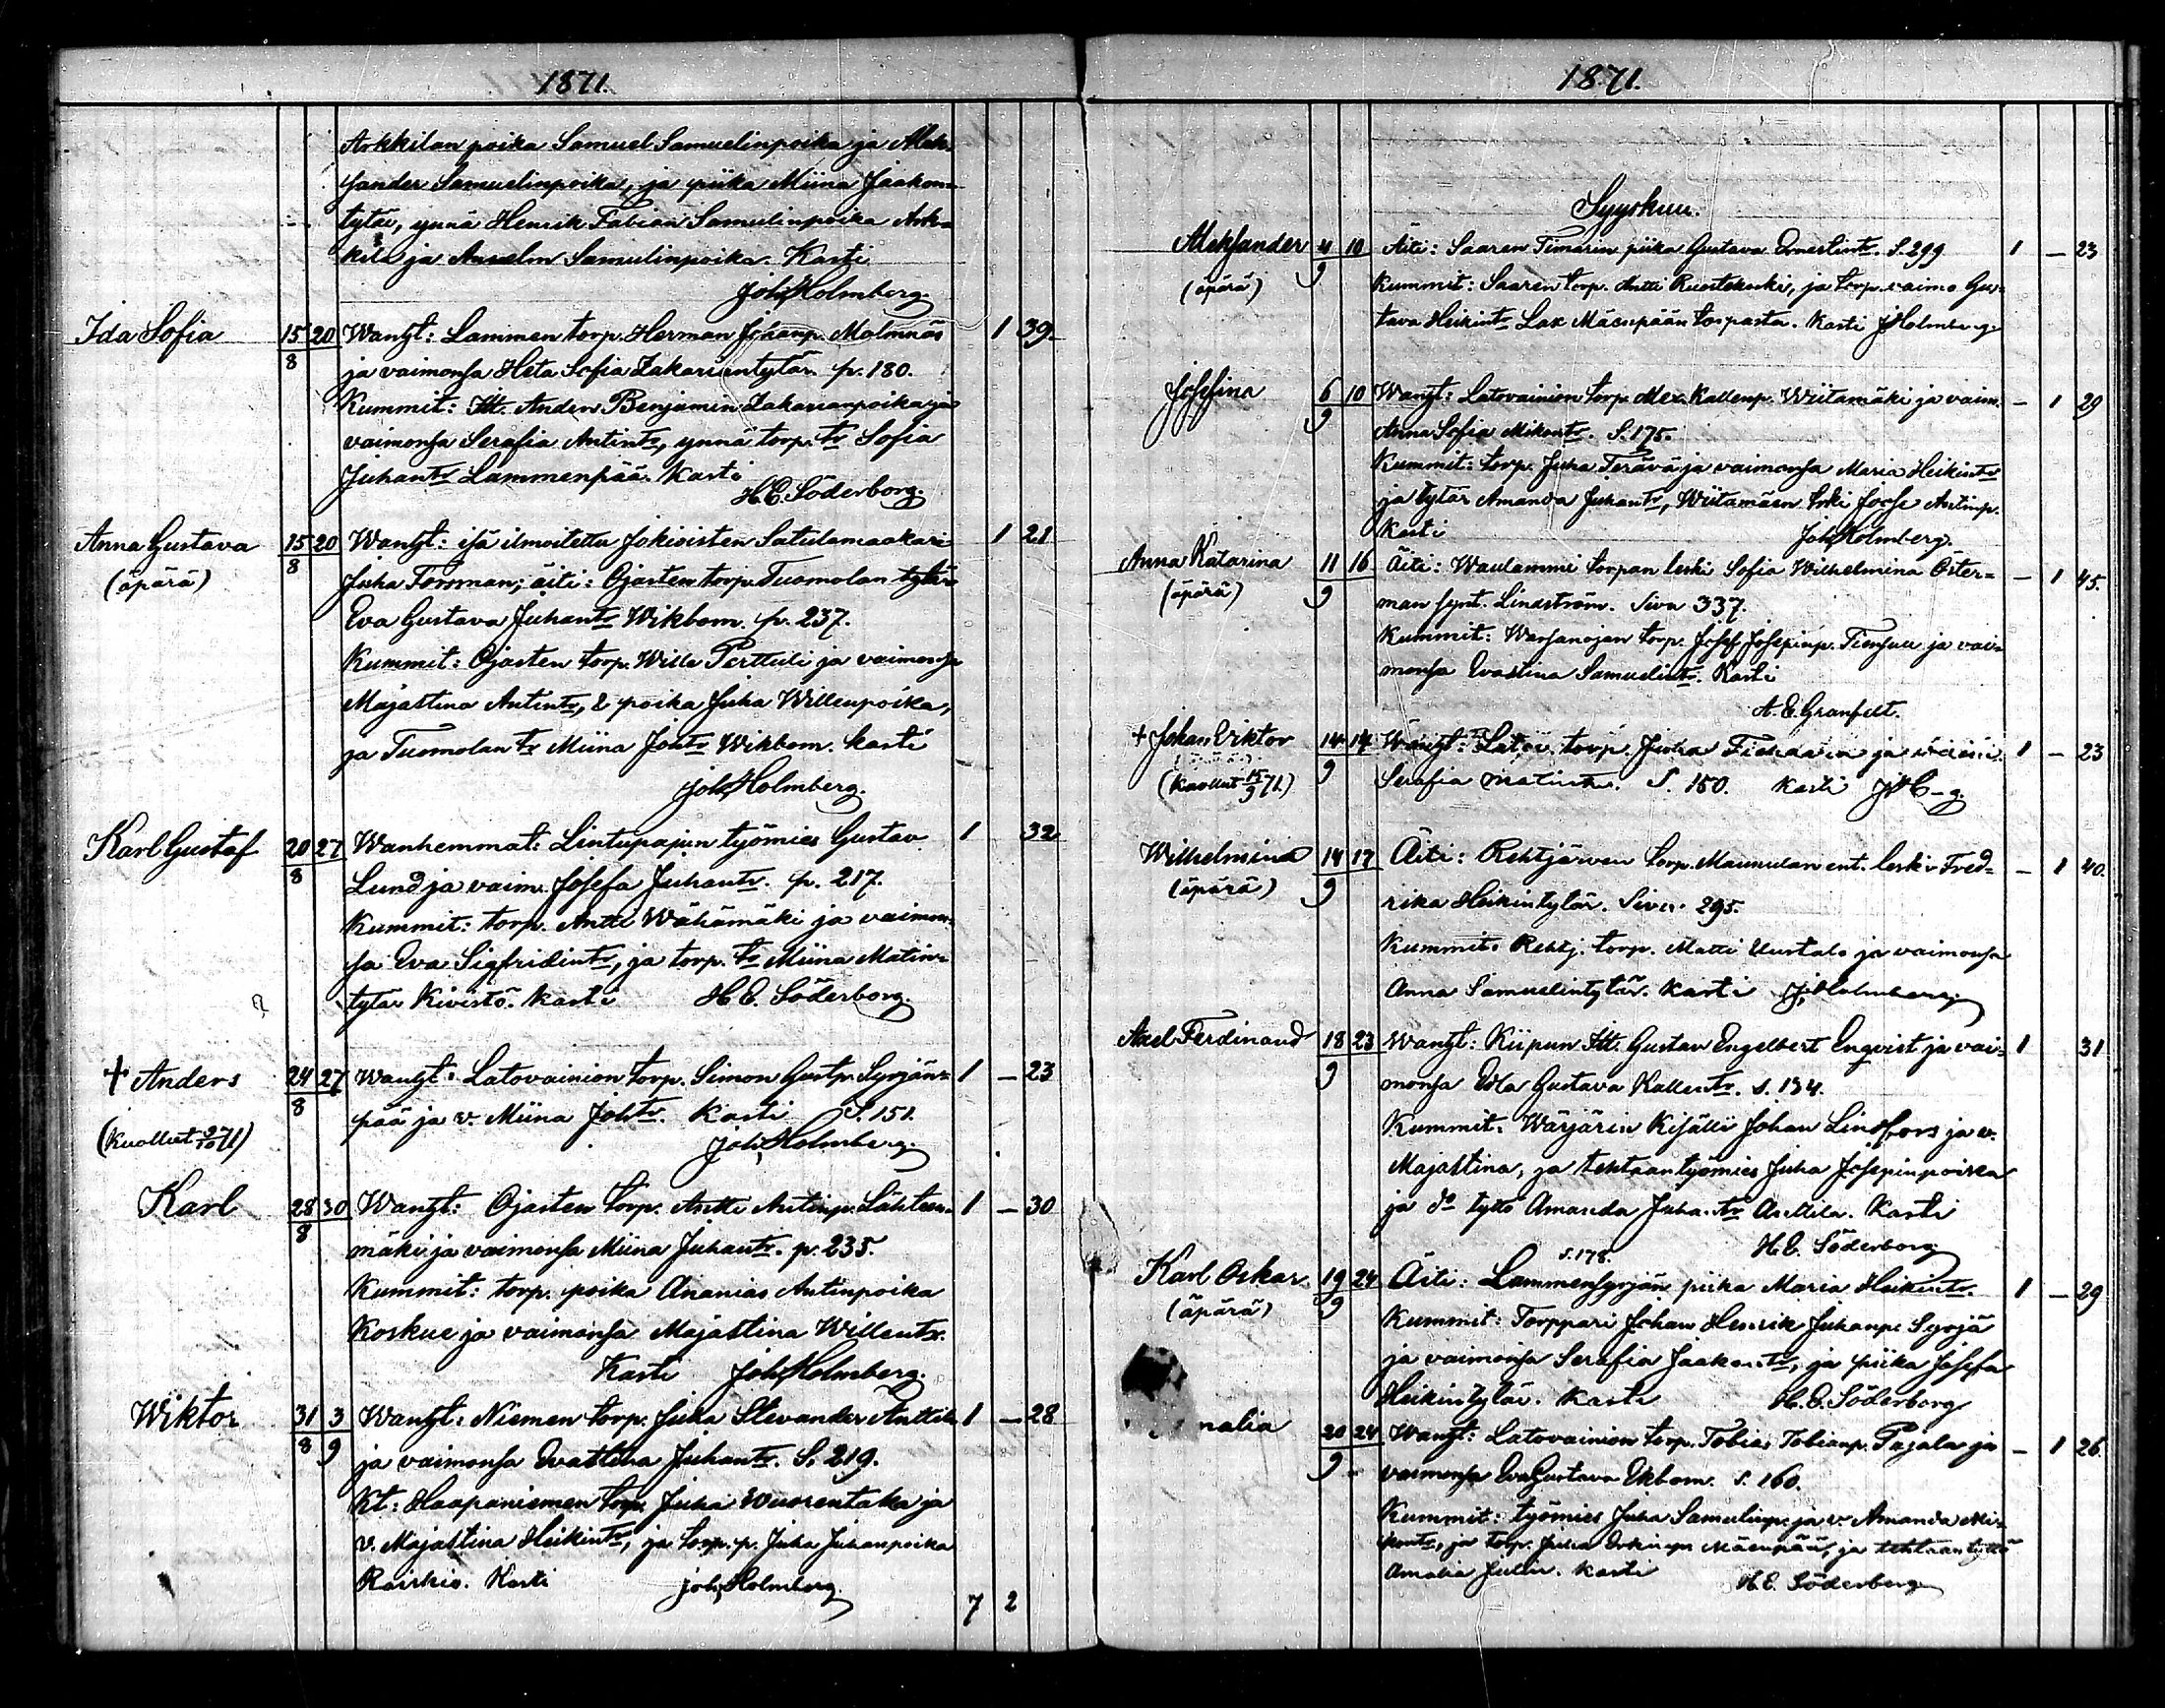 1871.
Arkkilan poika Samuel Samuelinpoika ja Alek-
sander Samuelinpoika, ja piika Miina Jaakon-
tytär, ynnä Henrik Fabian Samulinpoika Ark-
kila ja Anselm Samulinpoika. Kasti
Joh. Holmberg.
Ida Sofia 15/8 20 Wanht: Lammen torp. Herman Juhanp. Malmnäs 1 39.
ja vaimonsa Heta Sofia Zakariantytär. p. 180.
Kummit: Itt. Anders Benjamin Zakarianpoika ja
vaimonsa Serafia Antintr, ynnä torp. tr Sofia
Juhantr Lammenpää. Kasti
H.E. Söderborg.
Anna Gustava 15/8 20 Wanht: isä ilmoitettu Jokioisten Satulamaakari 1 21
(äpärä) Juha Forsman; äiti: Ojasten torp. Tuomolan tytär
Eva Gustava Juhantr Wikbom. p. 237.
Kummit: Ojasten torp. Wille Perttuli ja vaimonsa
Majastina Antintr, & poika Juha Willenpoika,
ja Tuomolan tr Miina Johtr Wikbom. kasti
Joh. Holmberg.
Karl Gustaf 20/8 27 Wanhemmat: Lintupajun työmies Gustav 1 32
Lund ja vaim. Josefa Juhantr. p. 217.
Kummit: torp. Antti Wähämäki ja vaimon-
sa Eva Sigfridintr, ja torp. tr Miina Matin-
tytär Kivistö. kasti H.E. Söderborg.
+ Anders 24/8 27 Wanht: Latovainion torp. Simon Gustp. Syrjän- 1 — 23
pää ja v. Miina Johtr. Kasti S. 151.
(kuollut 27/10 71) Joh. Holmberg.
Karl 28/8 30 Wanht: Ojasten torp. Antti Antinp. Lähteen- 1 — 30
mäki ja vaimonsa Miina Juhantr. p. 235.
Kummit: torp. poika Ananias Antinpoika
Koskue ja vaimonsa Majastina Willentr.
Kasti Joh. Holmberg.
Wiktor 31/8 3/9 Wanht: Niemen torp. Juha Stevander Anttila 1 — 28
ja vaimonsa Evastina Juhantr. S. 219.
Kt: Haapaniemen torp. Juha Wuorentaka ja
v. Majastina Heikintr, ja torp. p. Juha Juhanpoika
Kasti Joh. Holmberg.
7 2
1871.
Syyskuu.
Aleksander 4/9 10 Äiti: Saaren Timärin piika Gustava Ernestintr. S. 299 1 — 23
(äpärä) Kummit: Saaren torp. Antti Ruostekoski, ja torp. vaimo Gus-
tava Heikintr Lax Mäenpään torpasta. Kasti J. Holmberg.
Josefina 6/9 10 Wanht: Latovainion torp. Alex. Kallenp. Wiitamäki ja vaim. — 1 29
Anna Sofia Mikontr. S. 175.
Kummit: torp. Juha Terävä ja vaimonsa Maria Heikintr
ja tytär Amanda Juhantr, Wiitamäen Antinp.
Kasti Joh. Holmberg.
Anna Katarina 11/9 16 Äiti: Waulammi torpan leski Sofia Wilhelmina Öster- — 1 45.
(äpärä) man synt. Lindström. Sivu 337.
Kummit: Warsanojan torp. Josef Josepinp. ja vai-
monsa Evastina Samuelintr. Kasti
A.E. Granfelt.
+ Johan Viktor 14/9 14 Wanht: Latov. torp. Juha ja vaim. 1 — 23
(kuollut 15/9 71) Serafia Matintr. S. 150. kasti J.H—g.
Wilhelmina 14/9 17 Äiti: Rehtjärven torp. Maunulan ent. leski Fred- — 1 40.
(äpärä) rika Heikintytär. Sivu. 295.
Kummit: Rehtj. torp. Matti Uustalo ja vaimonsa
Anna Samuelintytär. Kasti J. Holmberg.
Axel Ferdinand 18/9 23 Wanht: Kiipun Itt. Gustav Engelbert Enqvist ja vai- 1 31
monsa Edla Gustava Kallentr. S. 134.
Kummit: Wärjärin Kisälli Johan Lindfors ja v.
Majastina, ja tehtaan työmies Juha Josepinpoika
ja do tyttö Amanda Juhantr Anttila. Kasti
H.E. Söderborg
S. 178.
Karl Oskar 19/9 24 Äiti: Lammensyrjän piika Maria Heikintr. 1 — 29
(äpärä) Kummit: Torppari Johan Henrik Juhanp. Syrjä
ja vaimonsa Serafia Jaakontr, ja piika Josefa
Heikintytär. Kasti H.E. Söderborg
malia 20/9 24 Wanht: Latovainion torp. Tobias Tobianp. Pajala ja — 1 26.
vaimonsa Eva Gustava Ekbom. S. 160.
Kummit: työmies Juha Samulinp. ja v. Amanda Mi-
kontr, ja torp. Juha Mäenpää, ja tehtaan tyttö
Amalia Julin. kasti H.E. Söderborg